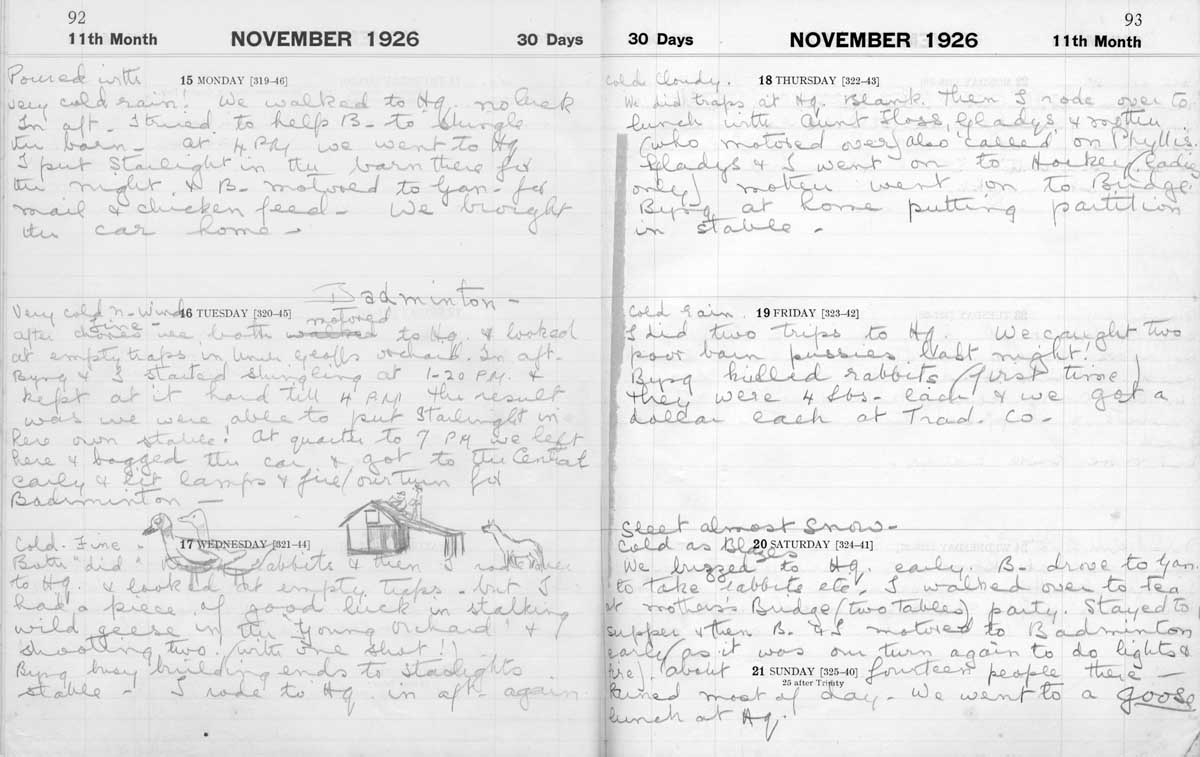 92
11th Month NOVEMBER 1926 30 Days
Poured with
15 MONDAY [319-46]
very cold rain! We walked to Hq. no luck
In aft. I tried to help B- to shingle
the barn - at 4 PM we went to Hq
I put Starlight in the barn there for
the night, & B- motored to Gan- for
mail & chicken feed - We brought
the car home -
Badminton -
Very cold N- Wind
16 TUESDAY [320-45]
fine - motored
after chores we both walked to Hq. & looked
at empty traps in lower orchard. In aft-
Byng & I started shingling at 1-20 P.M. &
kept at it hard till 4 P.M. the result
was we were able to put Starlight in
her own stable! At quarter to 7 PM we left
here & bagged the car & got to the Central
early & lit lamps & fire (our turn for
Badminton -
Cold. Fine.
17 WEDNESDAY [321-44]
But rabbits & then I rode over
to Hq. & looked at empty traps - but I
had a piece of good luck in stalking
wild geese in the "Young Orchard" &
shooting two. (with one shot!!)
By- busy building ends to Starlights
stable - I rode to Hq. in aft- again
93
30 Days NOVEMBER 1926 11th Month
Cold Cloudy.
18 THURSDAY [322-43]
We did traps at Hq. Blank. Then I rode over to
lunch with Aunt Floss, Gladys & mother
(who motored over) also 'called' on Phyllis.
Gladys & I went on to Hockey (ladies
only) mother went on to Bridge
Byng at home putting partition
in stable -
Cold rain.
19 FRIDAY [323-42]
I did two trips to Hq. We caught two
poor barn pussies last night!
Byng killed rabbits (first time)
they were 4 lbs- each & we got a
dollar each at Trad. Co-
Sleet almost snow-
Cold as Blazes
20 SATURDAY [324-41]
We buzzed to Hq. early. B- drove to Gan.
to take rabbits etc. I walked over to tea
at mother's Bridge (two tables) party. Stayed to
supper & then B. & I motored to Badminton
early (as it was our turn again to do lights &
fire). about fourteen people there -
21 SUNDAY [325-40]
25 after Trinity
Rained most of day - We went to a goose
lunch at Hq.